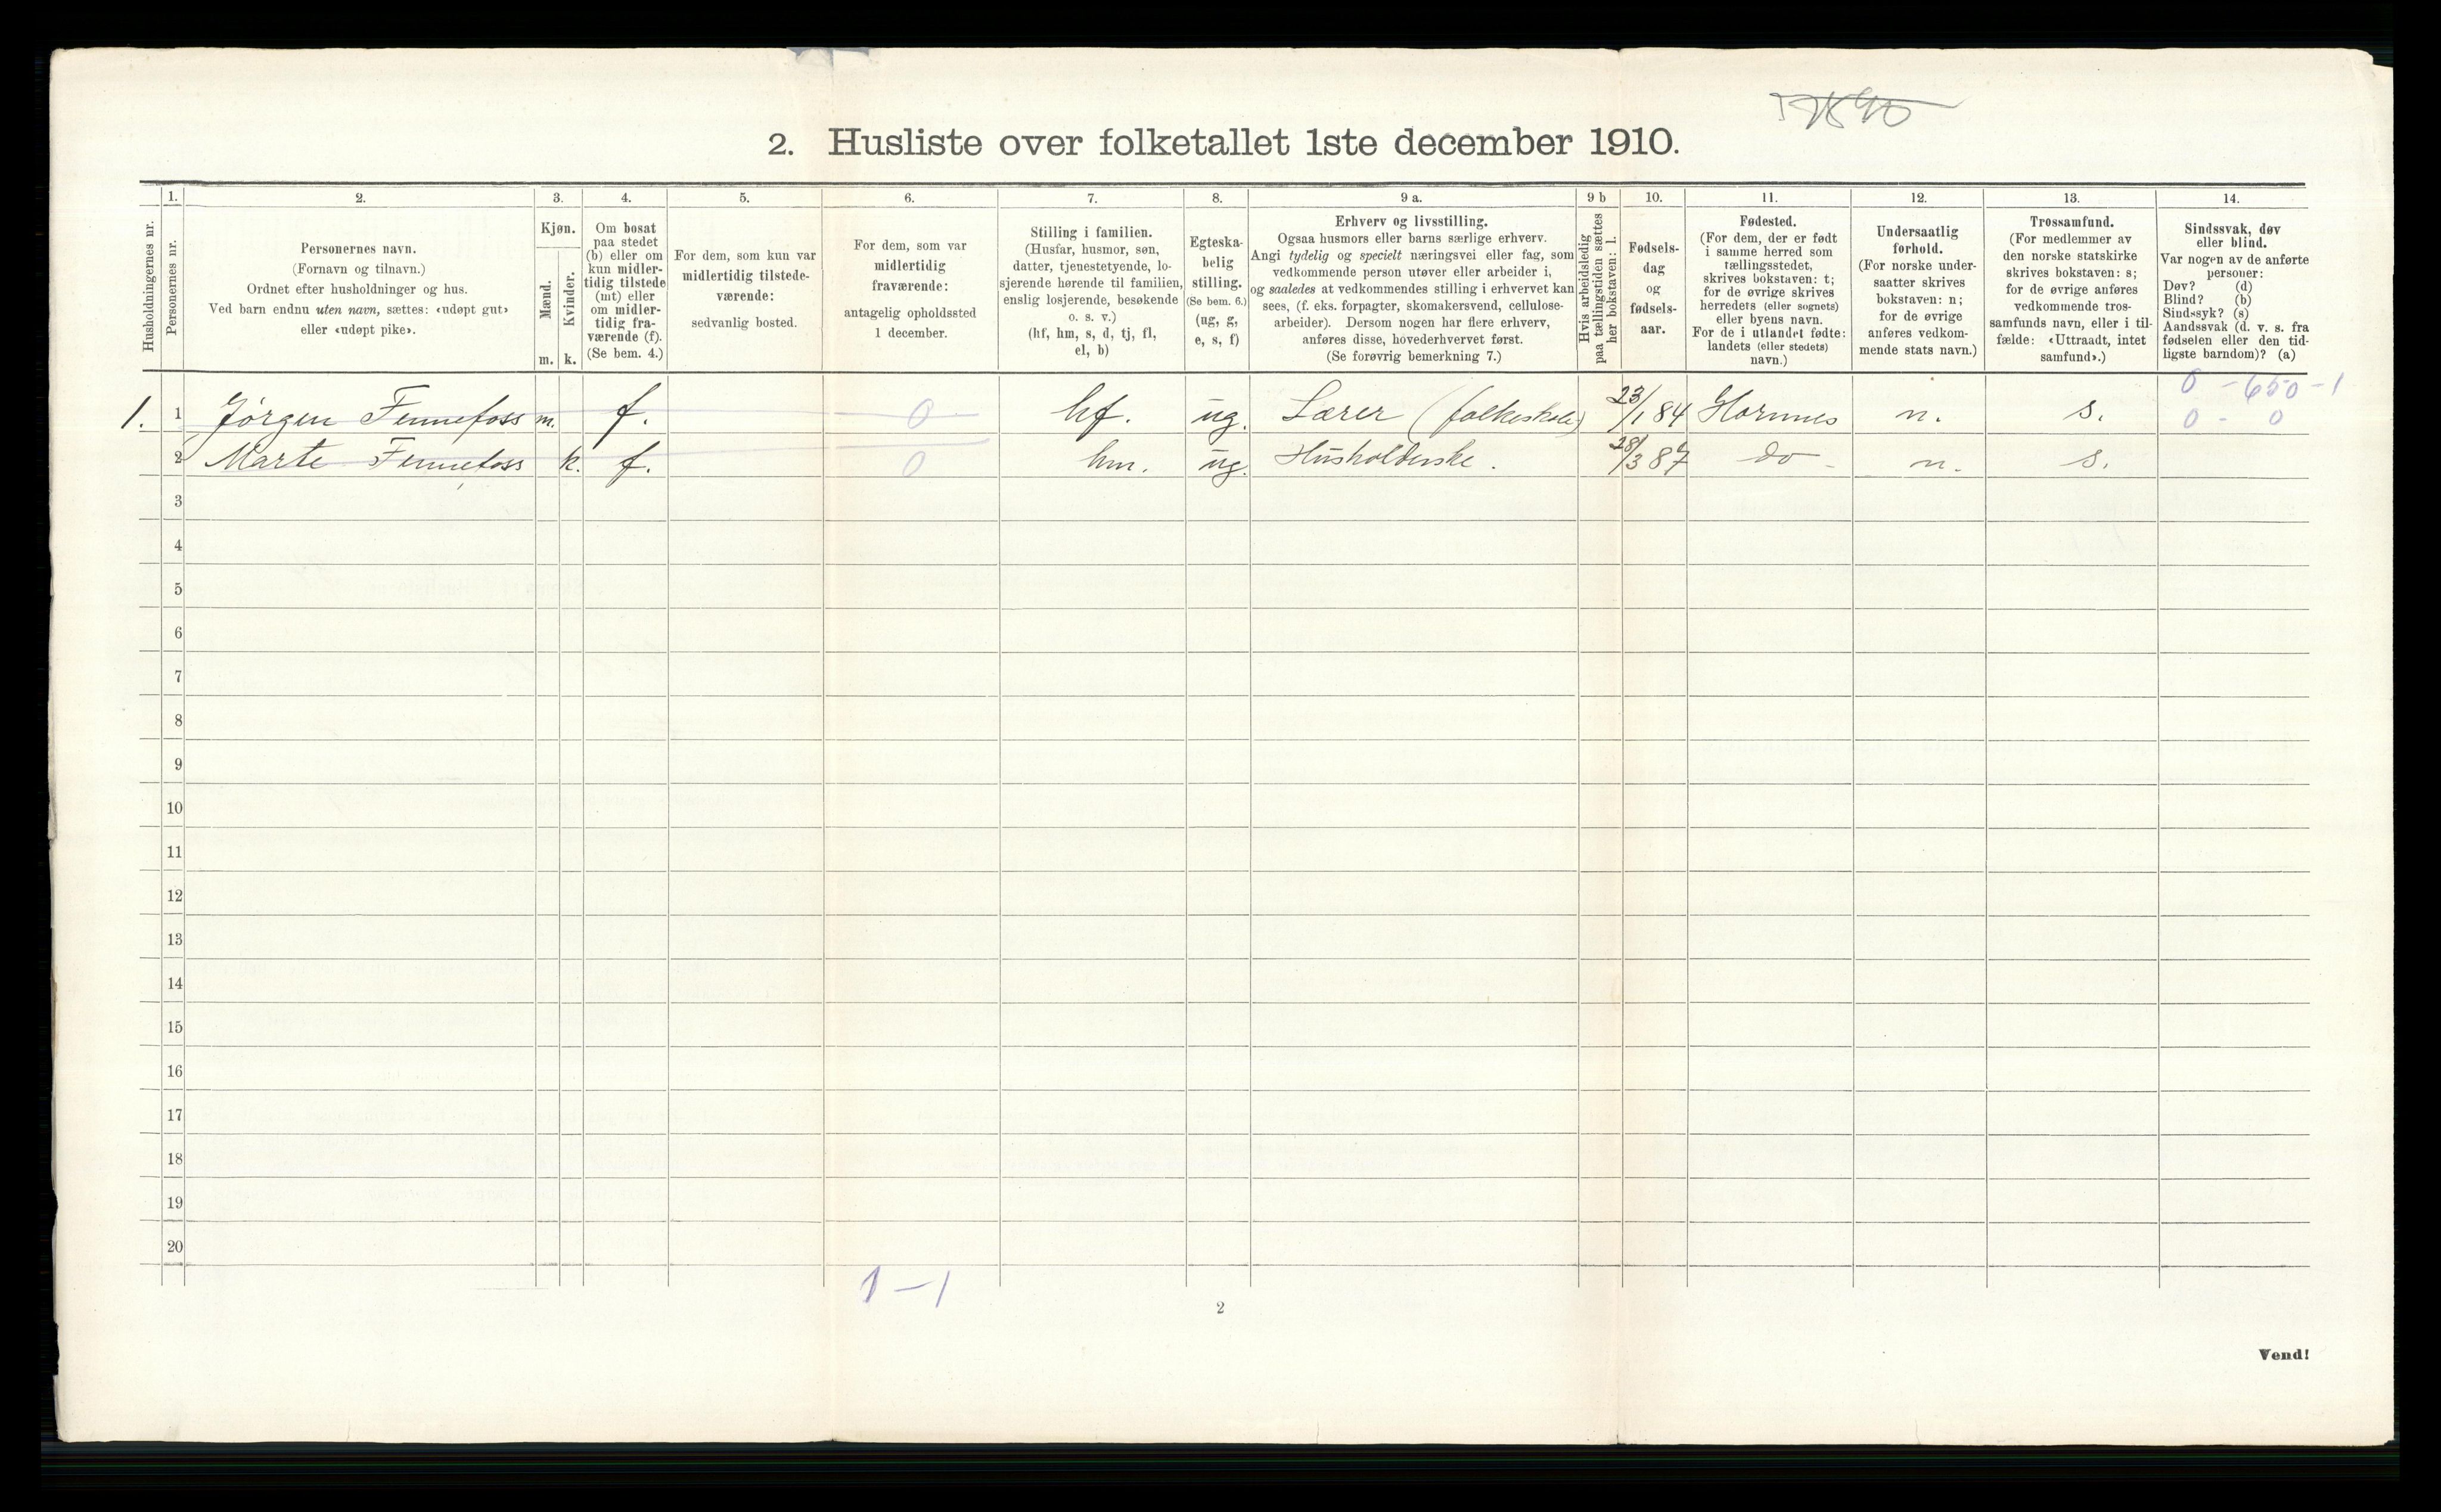 2. Husliste over folketallet 1ste december 1910.
Husholdningernes nr.
1.
Personernes nr.
2.
Personernes navn.
(Fornavn og tilnavn.)
Ordnet efter husholdninger og hus.
Ved barn endnu uten navn, sættes: «udøpt gut»
eller «udøpt pike».
3.
Kjøn.
Mænd.
Kvinder.
m. k.
4.
Om bosat
paa stedet
(b) eller om
kun midler-
tidig tilstede
(mt) eller
om midler-
tidig fra-
værende (f).
(Se bem. 4.)
5.
For dem, som kun var
midlertidig tilstede-
værende:
sedvanlig bosted.
6.
For dem, som var
midlertidig
fraværende:
antagelig opholdssted
1 december.
7.
Stilling i familien.
(Husfar, husmor, søn,
datter, tjenestetyende, lo-
sjerende hørende til familien,
enslig losjerende, besøkende
o. s. v.)
(hf, hm, s, d, tj, fl,
el, b)
8.
Egteska-
belig
stilling.
(Se bem. 6.)
(ug, g,
e, s, f)
9 a.
Erhverv og livsstilling.
Ogsaa husmors eller barns særlige erhverv.
Angi tydelig og specielt næringsvei eller fag, som
vedkommende person utøver eller arbeider i,
og saaledes at vedkommendes stilling i erhvervet kan
sees, (f. eks. forpagter, skomakersvend, cellulose-
arbeider). Dersom nogen har flere erhverv,
anføres disse, hovederhvervet først.
(Se forøvrig bemerkning 7.)
9 b
Hvis arbeidsledig
paa tællingstiden sættes
her bokstaven: l.
10.
Fødsels-
dag
og
fødsels-
aar.
11.
Fødested.
(For dem, der er født
i samme herred som
tællingsstedet,
skrives bokstaven: t;
for de øvrige skrives
herredets (eller sognets)
eller byens navn.
For de i utlandet fødte:
landets (eller stedets)
navn.)
12.
Undersaatlig
forhold.
(For norske under-
saatter skrives
bokstaven: n;
for de øvrige
anføres vedkom-
mende stats navn.)
13.
Trossamfund.
(For medlemmer av
den norske statskirke
skrives bokstaven: s;
for de øvrige anføres
vedkommende tros-
samfunds navn, eller i til-
fælde: «Uttraadt, intet
samfund».)
14.
Sindssvak, døv
eller blind.
Var nogen av de anførte
personer:
Døv? (d)
Blind? (b)
Sindssyk? (s)
Aandssvak (d. v. s. fra
fødselen eller den tid-
ligste barndom)? (a)
0 - 650 - 1
1. 1 Jørgen Fennefoss m. f. 0 hf. ug. Lærer (folkeskole) 23/1 84 Hornnes n. s. 0 - 0
2 Marte Fennefoss k. f. 0 hm. ug. Husholderske. 28/3 87 do - n. s.
3
4
5
6
7
8
9
10
11
12
13
14
15
16
17
18
19
20
1 - 1
2
Vend!